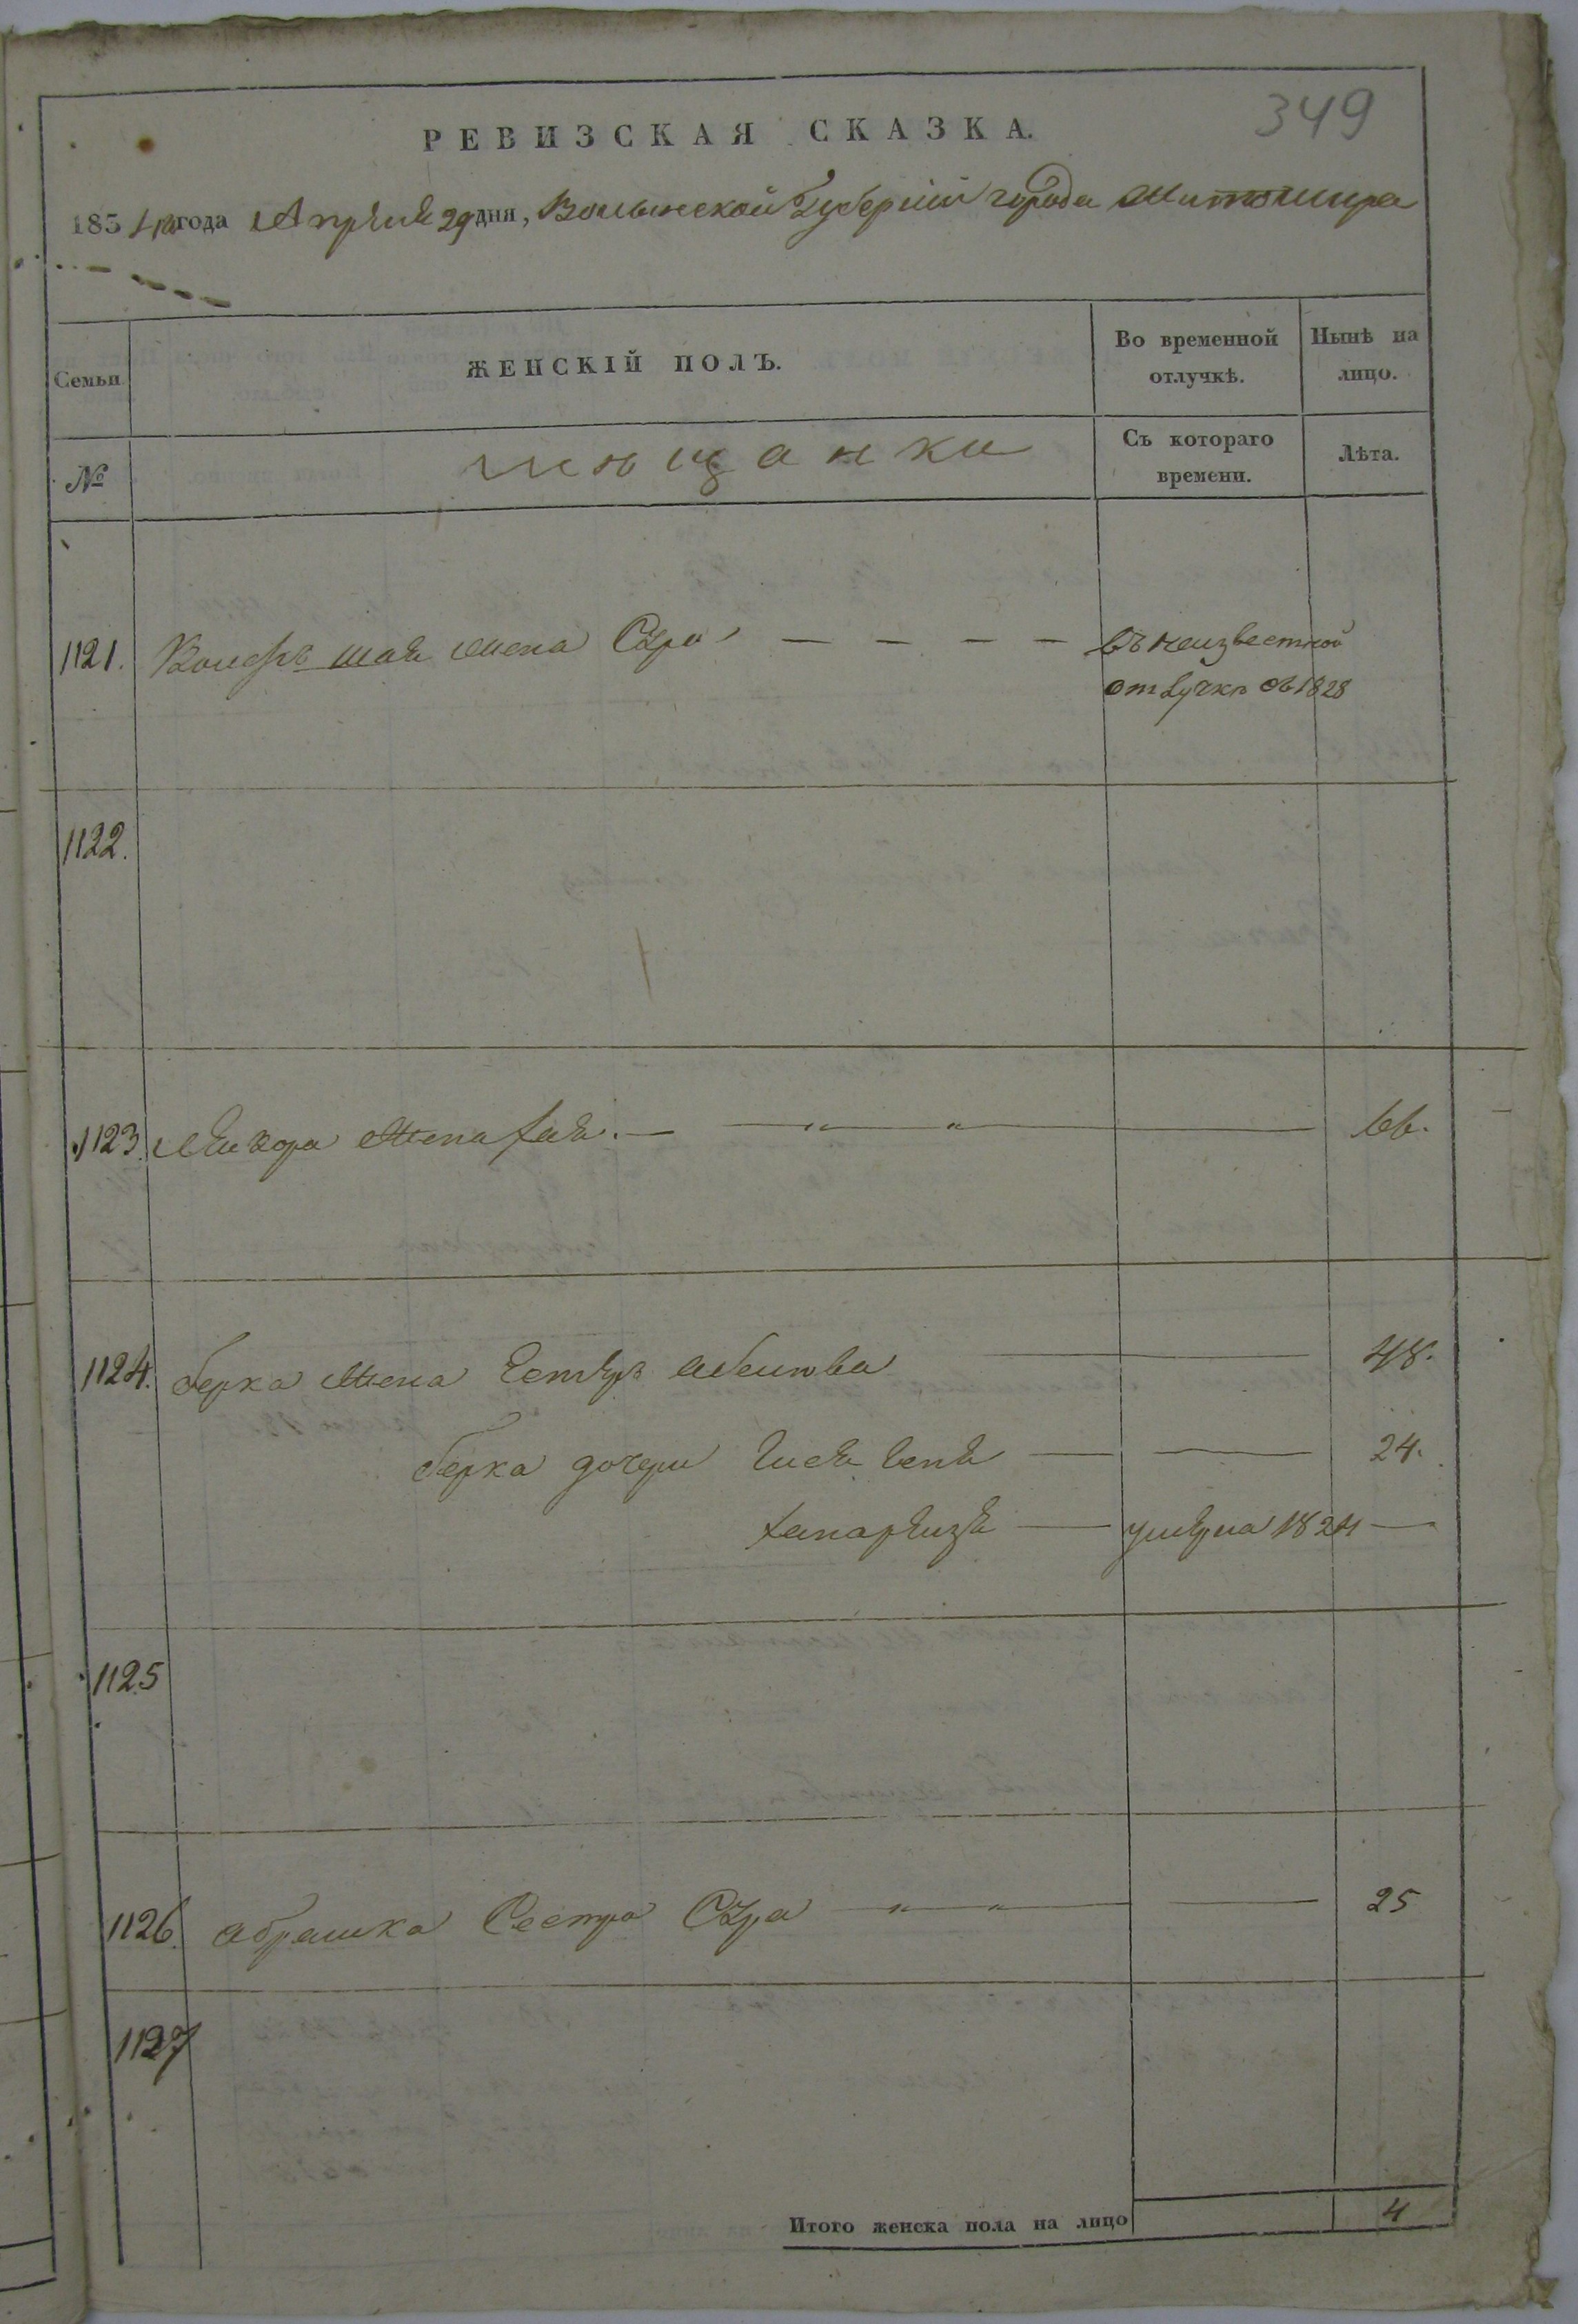 349
РЕВИЗСКАЯ СКАЗКА.
1834 года Апреля 29 дня, Волынской Губернии города Житомира
Семьи
ЖЕНСКІЙ ПОЛЪ.
Во временной отлучкѣ.
Нынѣ на лицо.
№
мѣщанки
Съ котораго времени.
Лѣта.
1121. жена Сура — — — — въ неизвестной
отлучкѣ съ 1828
1122.
1123. жена Хая. — 66.
1124. Берка жена Естеръ — 48.
Берка дочери — 24.
— умерла 1824 —
1125
1126. Абрашка Сестра Сура — 25
1127
Итого женска пола на лицо 4